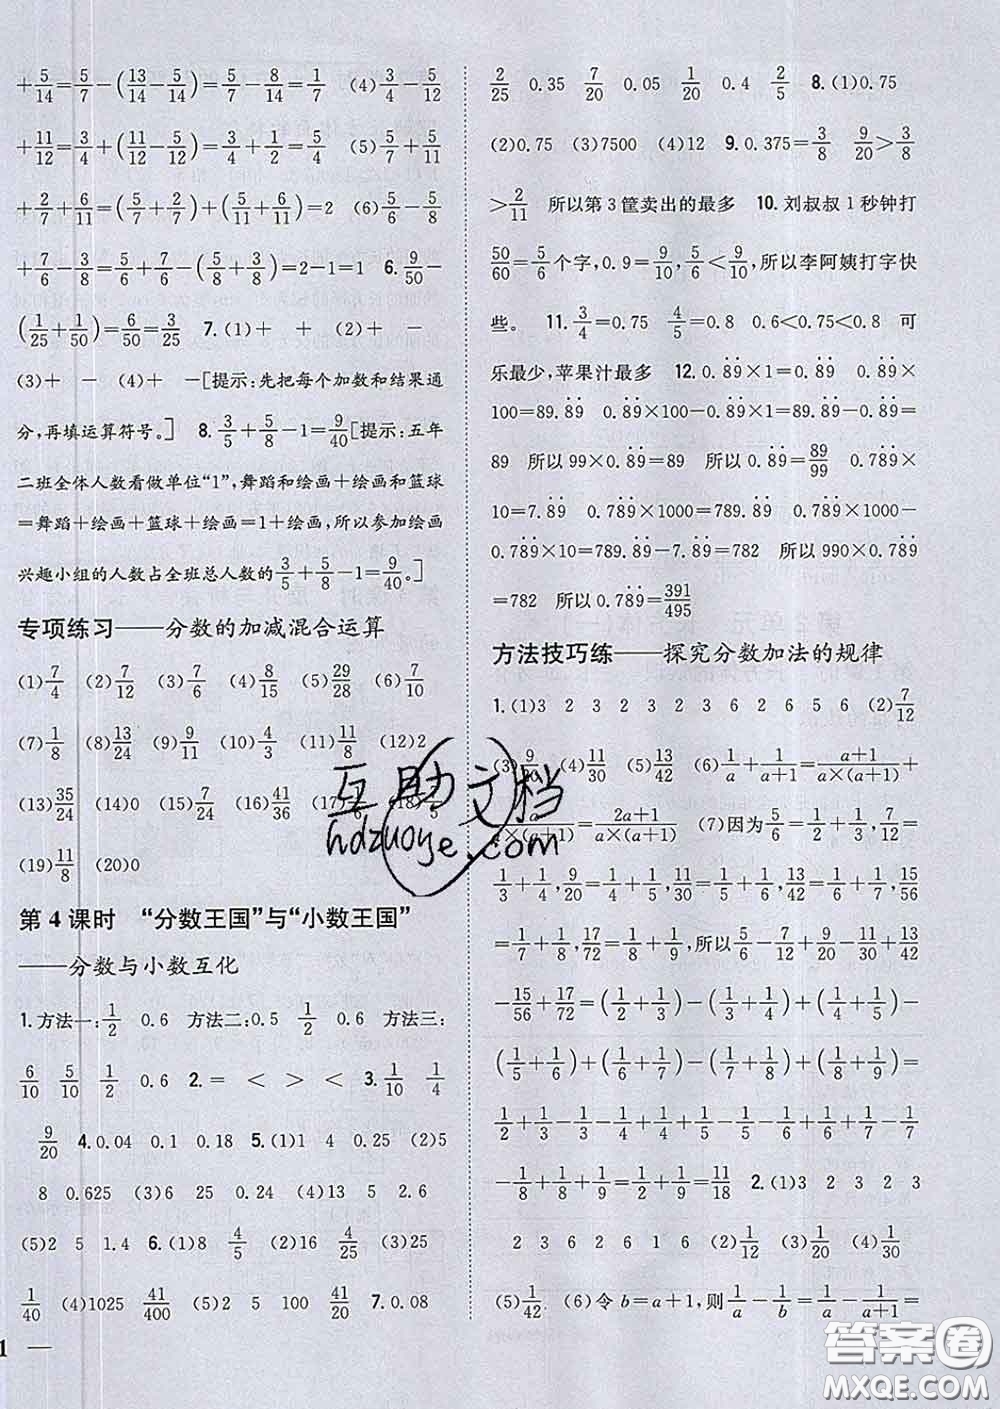 +5/14=5/7-(13/14-5/14)=5/7-8/14=1/7 (4)3/4-5/12
+11/12=3/4+(11/12-5/12)=3/4+1/2=5/4 (5)5/7+5/11
+2/7+6/11=(5/7+2/7)+(5/11+6/11)=2 (6)5/6-5/8
+7/6-3/8=5/6+7/6-(5/8+3/8)=2-1=1 6.9/50-
(1/25+1/50)=6/50=3/25 7.(1)+ + (2)+ -
(3)+ - (4)+ -[提示:先把每个加数和结果通
分,再填运算符号。] 8.3/5+5/8-1=9/40[提示:五年
二班全体人数看做单位“1”,舞蹈和绘画+绘画和篮球
=舞蹈+绘画+篮球+绘画=1+绘画,所以参加绘画
兴趣小组的人数占全班总人数的3/5+5/8-1=9/40。]
专项练习——分数的加减混合运算
(1)7/4 (2)7/12 (3)7/6 (4)8/15 (5)29/28 (6)7/10
(7)1/8 (8)13/24 (9)9/11 (10)4/3 (11)11/8 (12)2
(13)35/24 (14)0 (15)7/24 (16)41/36 (17) /6 (18)
(19)11/8 (20)0
第4课时 “分数王国”与“小数王国”
——分数与小数互化
1.方法一:1/2 0.6 方法二:0.5 1/2 0.6 方法三:
6/10 5/10 1/2 0.6 2.= < > < 3.1/10 1/4
9/20 4.0.04 0.1 0.18 5.(1)1 4 0.25 (2)5
8 0.625 (3)6 25 0.24 (4)13 5 2.6
(5)2 5 1.4 6.(1)8 4/5 (2)16 4/25 (3)25
1/40 (4)1025 41/400 (5)2 5 100 41/20 7.0.08
1 —
2/25 0.35 7/20 0.05 1/20 0.4 2/5 8.(1)0.75
(2)0.75 (3)7500 (4)12 9.0.375=3/8 9/20>3/8
>2/11 所以第3筐卖出的最多 10.刘叔叔1秒钟打
50/60=5/6个字,0.9=9/10,5/6<9/10,所以李阿姨打字快
些。 11.3/4=0.75 4/5=0.8 0.6<0.75<0.8 可
乐最少,苹果汁最多 12.0.8̇9̇×1=0.8̇9̇ 0.8̇9̇×
100=89.8̇9̇ 0.8̇9̇×100-0.8̇9̇×1=89.8̇9̇-0.8̇9̇=
89 所以99×0.8̇9̇=89 所以0.8̇9̇=89/99 0.78̇9̇×
10=7.8̇9̇ 0.78̇9̇×1000=789.8̇9̇ 0.78̇9̇×1000-
0.78̇9̇×10=789.8̇9̇-7.8̇9̇=782 所以990×0.78̇9̇
=782 所以0.78̇9̇=391/495
方法技巧练——探究分数加法的规律
1.(1)3 2 3 2 3 2 3 6 2 6 5 6 (2)7/12
(3)9/20 (4)11/30 (5)13/42 (6)1/a+1/(a+1)=(a+1)/(a×(a+1))+
a/(a×(a+1))=(2a+1)/(a×(a+1)) (7)因为5/6=1/2+1/3,7/12=
1/3+1/4,9/20=1/4+1/5,11/30=1/5+1/6,13/42=1/6+1/7,15/56
=1/7+1/8,17/72=1/8+1/9,所以5/6-7/12+9/20-11/30+13/42
-15/56+17/72=(1/2+1/3)-(1/3+1/4)+(1/4+1/5)-
(1/5+1/6)+(1/6+1/7)-(1/7+1/8)+(1/8+1/9)=
1/2+1/3-1/3-1/4+1/4+1/5-1/5-1/6+1/6+1/7-1/7
-1/8+1/8+1/9=1/2+1/9=11/18 2.(1)3 2 3 2 3
2 3 6 2 6 1 6 (2)1/12 (3)1/20 (4)1/30
(5)1/42 (6)令b=a+1,则1/a-1/b=1/a-1/(a+1)=
互助文档
hdzuoye.com
答案圈
MXQE.COM